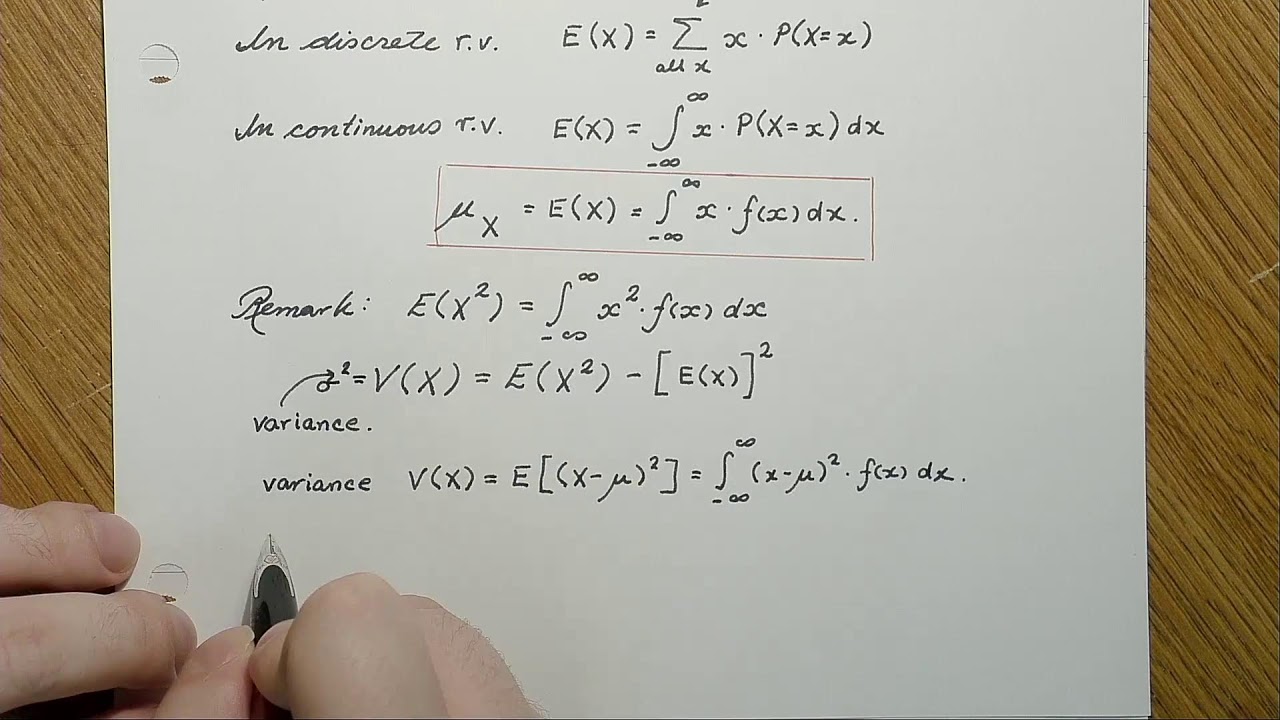 In discrete r.v. E(X) = ∑ x · P(X=x)
all x
In continuous r.v. E(X) = ∫_{-∞}^{∞} x · P(X=x) dx
μ_X = E(X) = ∫_{-∞}^{∞} x · f(x) dx.
Remark: E(X²) = ∫_{-∞}^{∞} x² · f(x) dx
σ² = V(X) = E(X²) - [E(X)]²
variance.
variance V(X) = E[(X-μ)²] = ∫_{-∞}^{∞} (x-μ)² · f(x) dx.